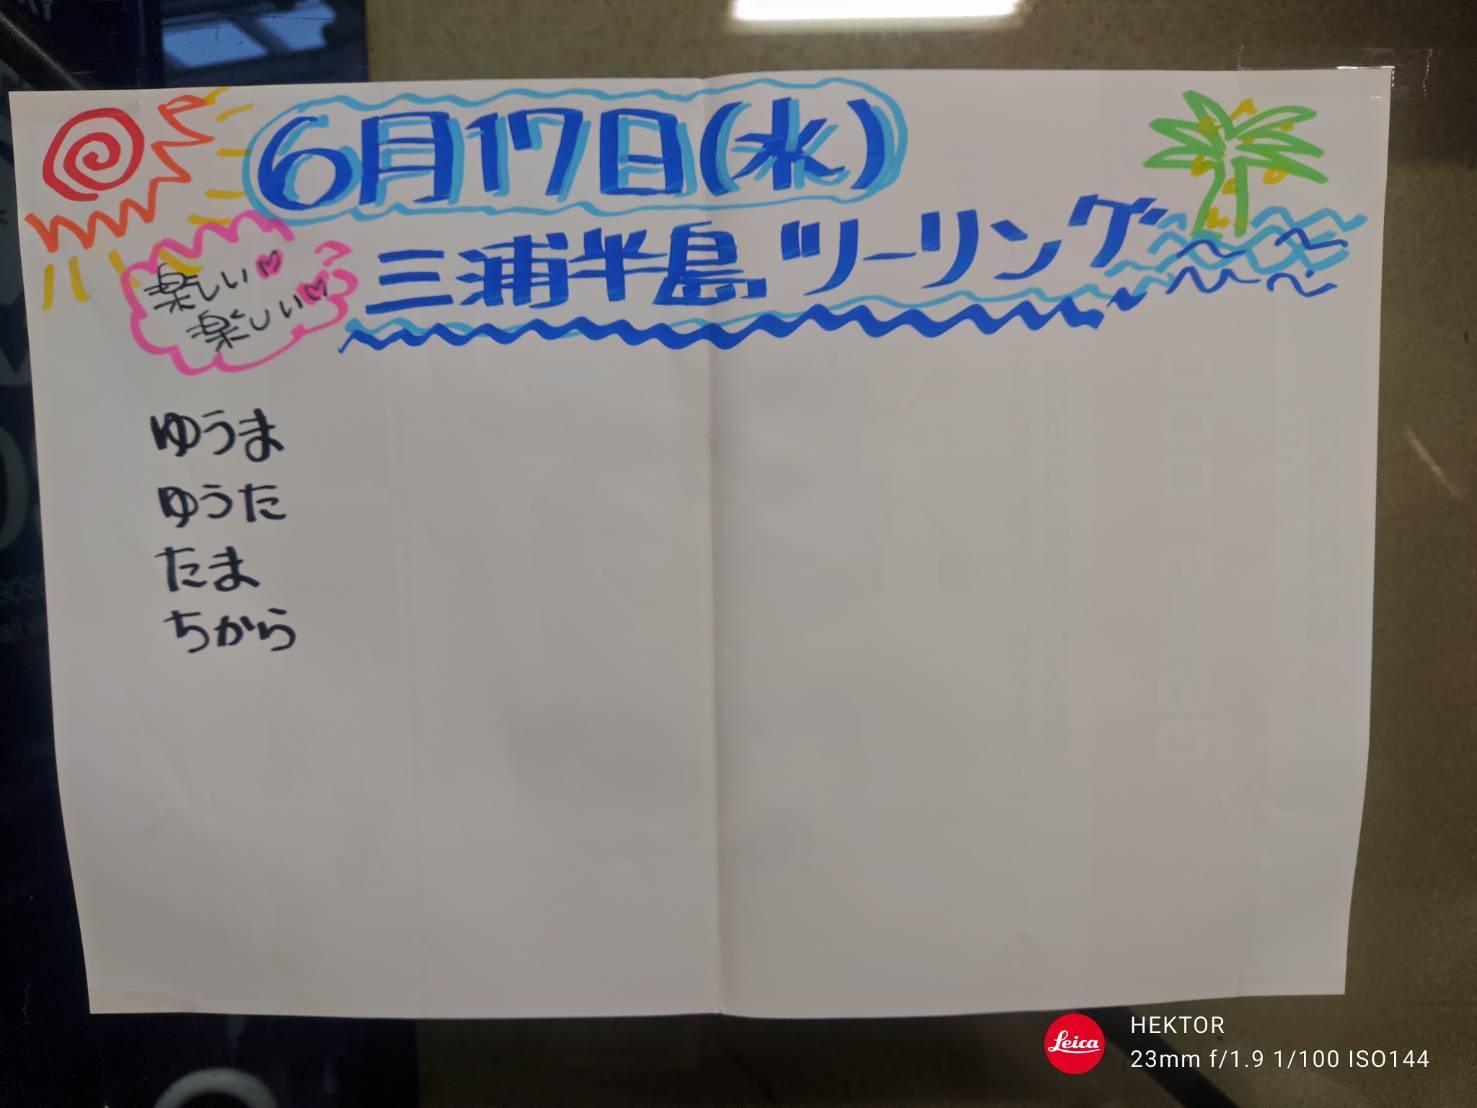 6月17日(水)
三浦半島ツーリング
楽しい♡
楽しい♡
ゆうま
ゆうた
たま
ちから
Leica
HEKTOR
23mm f/1.9 1/100 ISO144